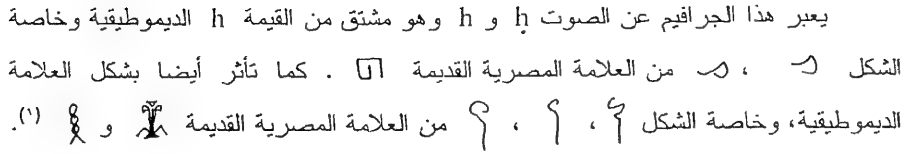 يعبر هذا الجرافيم عن الصوت ḥ و h وهو مشتق من القيمة h الديموطيقية وخاصة
الشكل ، من العلامة المصرية القديمة 𓉔 . كما تأثر أيضا بشكل العلامة
الديموطيقية، وخاصة الشكل ، ، من العلامة المصرية القديمة و 𓎛 (١).